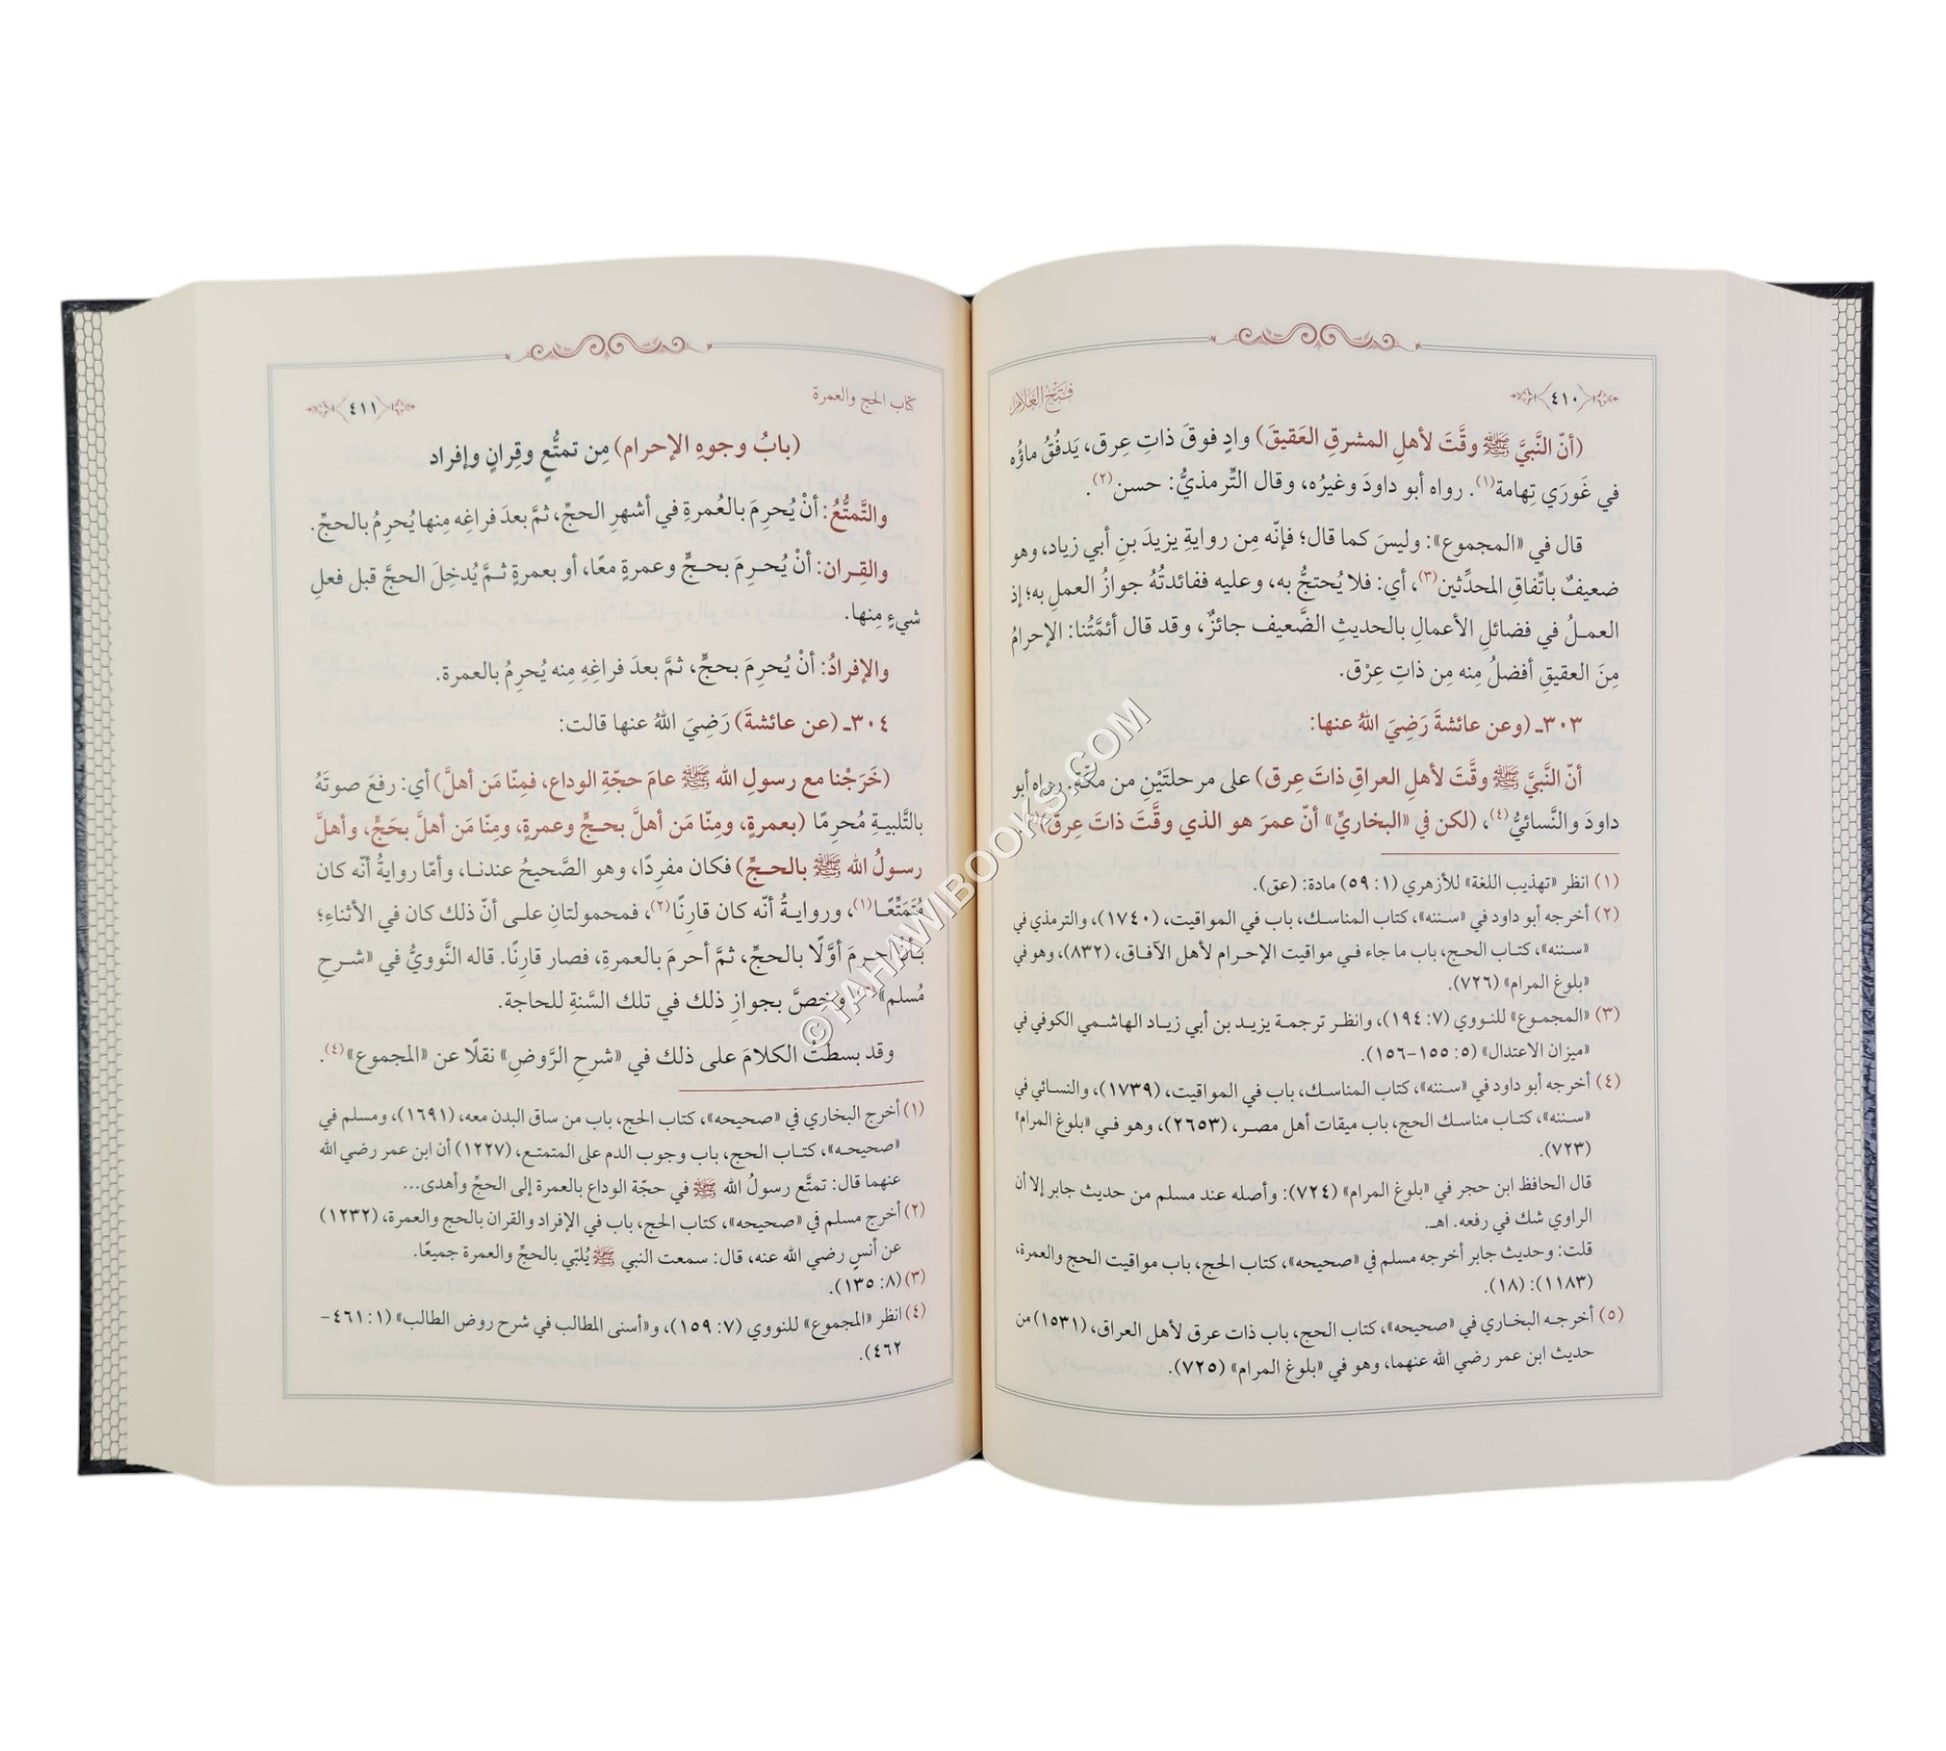 ٤١٠
فتح العلام
(أنّ النَّبيَّ ﷺ وقَّتَ لأهلِ المشرقِ العَقيقَ) وادٍ فوقَ ذاتِ عِرق، يَدفُقُ ماؤُه
في غَورَي تِهامة(١). رواه أبو داودَ وغيرُه، وقال التِّرمذيُّ: حسن(٢).
قال في «المجموع»: وليسَ كما قال؛ فإنّه مِن روايةِ يزيدَ بنِ أبي زياد، وهو
ضعيفٌ باتِّفاقِ المحدِّثين(٣)، أي: فلا يُحتجُّ به، وعليه ففائدتُهُ جوازُ العملِ به؛ إذ
العمـلُ في فضائلِ الأعمالِ بالحديثِ الضَّعيف جائزٌ، وقد قال أئمَّتُنا: الإحرامُ
مِنَ العقيقِ أفضلُ مِنه مِن ذاتِ عِرْق.
٣٠٣ـ (وعن عائشةَ رَضِيَ اللهُ عنها:
أنّ النَّبيَّ ﷺ وقَّتَ لأهلِ العراقِ ذاتَ عِرق) على مرحلتَيْنِ من مكّةَ. رواه أبو
داودَ والنَّسائيُّ(٤)، (لكن في «البخاريِّ» أنّ عمرَ هو الذي وقَّتَ ذاتَ عِرق)
(١) انظر «تهذيب اللغة» للأزهري (١: ٥٩) مادة: (عق).
(٢) أخرجه أبو داود في «سننه»، كتاب المناسـك، باب في المواقيت، (١٧٤٠)، والترمذي في
«سـننه»، كتـاب الحج، باب ما جاء فـي مواقيت الإحـرام لأهل الآفـاق، (٨٣٢)، وهو في
«بلوغ المرام» (٧٢٦).
(٣) «المجمـوع» للنـووي (٧: ١٩٤)، وانظـر ترجمـة يزيـد بن أبي زيـاد الهاشـمي الكوفي في
«ميزان الاعتدال» (٥: ١٥٥-١٥٦).
(٤) أخرجه أبو داود في «سـننه»، كتاب المناسـك، باب في المواقيت، (١٧٣٩)، والنسـائي في
«سـننه»، كتـاب مناسـك الحج، باب ميقات أهل مصـر، (٢٦٥٣)، وهو فـي «بلوغ المرام»
(٧٢٣).
قال الحافظ ابن حجر في «بلوغ المرام» (٧٢٤): وأصله عند مسلم من حديث جابر إلا أن
الراوي شك في رفعه. اهـ.
قلت: وحديث جابر أخرجه مسلم في «صحيحه»، كتاب الحج، باب مواقيت الحج والعمرة،
(١١٨٣): (١٨).
(٥) أخرجـه البخـاري في «صحيحه»، كتاب الحج، باب ذات عرق لأهل العراق، (١٥٣١) من
حديث ابن عمر رضي الله عنهما، وهو في «بلوغ المرام» (٧٢٥).
كتاب الحج والعمرة
٤١١
(بابُ وجوهِ الإحرام) مِن تمتُّعٍ وقِرانٍ وإفراد
والتَّمتُّعُ: أنْ يُحرِمَ بالعُمرةِ في أشهرِ الحجِّ، ثمَّ بعدَ فراغِه مِنها يُحرِمُ بالحجِّ.
والقِـران: أنْ يُحـرِمَ بحـجٍّ وعمرةٍ معًا، أو بعمرةٍ ثـمَّ يُدخِلَ الحجَّ قبل فعلِ
شيءٍ مِنها.
والإفرادُ: أنْ يُحرِمَ بحجٍّ، ثمَّ بعدَ فراغِهِ مِنه يُحرِمُ بالعمرة.
٣٠٤ـ (عن عائشةَ) رَضِيَ اللهُ عنها قالت:
(خَرَجْنا مع رسولِ الله ﷺ عامَ حجّةِ الوداع، فمِنّا مَن أهلَّ) أي: رفعَ صوتَهُ
بالتَّلبيـةِ مُحرِمًا (بعمرةٍ، ومِنّا مَن أهلَّ بحـجٍّ وعمرةٍ، ومِنّا مَن أهلَّ بحَجٍّ، وأهلَّ
رسـولُ الله ﷺ بالحـجِّ) فكان مفرِدًا، وهو الصَّحيحُ عندنـا، وأمّا روايةُ أنّه كان
مُتَمَتِّعًـا(١)، وروايـةُ أنّه كان قارِنًا(٢)، فمحمولتانِ علـى أنّ ذلك كان في الأثناءِ؛
بـأنْ أحـرمَ أوَّلًا بالحجِّ، ثمَّ أحرمَ بالعمرةِ، فصار قارِنًا. قاله النَّوويُّ في «شـرحِ
مُسلم»(٣) وخصَّ بجوازِ ذلك في تلك السَّنةِ للحاجة.
وقد بسطتُ الكلامَ على ذلك في «شرحِ الرَّوضِ» نقلًا عن «المجموع»(٤).
(١) أخرج البخاري في «صحيحه»، كتاب الحج، باب من ساق البدن معه، (١٦٩١)، ومسلم في
«صحيحـه»، كتـاب الحج، باب وجوب الدم على المتمتـع، (١٢٢٧) أن ابن عمر رضي الله
عنهما قال: تمتَّع رسولُ الله ﷺ في حجّة الوداع بالعمرة إلى الحجِّ وأهدى...
(٢) أخرج مسلم في «صحيحه»، كتاب الحج، باب في الإفراد والقران بالحج والعمرة، (١٢٣٢)
عن أنسٍ رضي الله عنه، قال: سمعت النبي ﷺ يُلبّي بالحجِّ والعمرة جميعًا.
(٣) (٨: ١٣٥).
(٤) انظر «المجموع» للنووي (٧: ١٥٩)، و«أسنى المطالب في شرح روض الطالب» (١: ٤٦١-
٤٦٢).
©TAHAWIBOOKS.COM